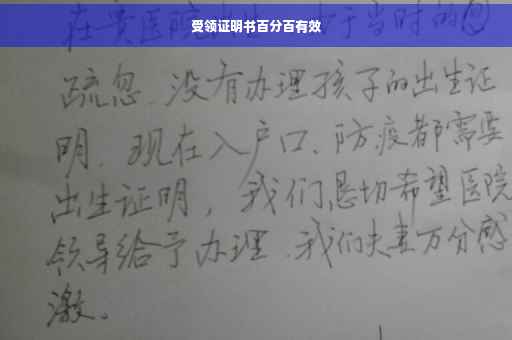 受领证明书百分百有效
在贵医院 于当时的
疏忽、没有办理孩子的出生证
明、现在入户口、防疫都需要
出生证明，我们恳切希望医院
领导给予办理、我们夫妻万分感
激。